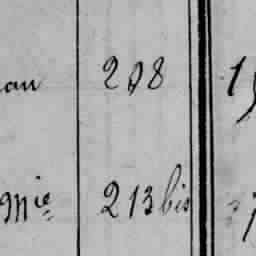 au 208 1
Mie 213 bis